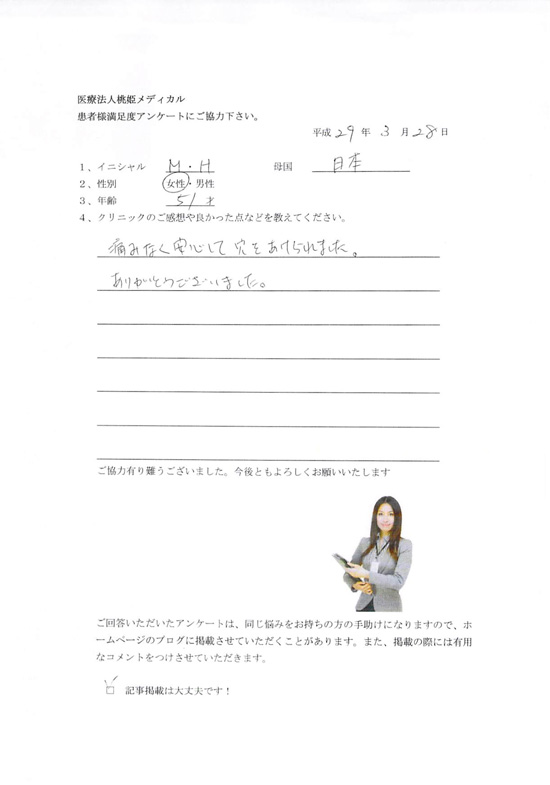 医療法人桃姫メディカル
患者様満足度アンケートにご協力下さい。
平成 29 年 3 月 28 日
1、イニシャル M・H 母国 日本
2、性別 女性・男性
3、年齢 51才
4、クリニックのご感想や良かった点などを教えてください。
痛みなく安心して穴をあけられました。
ありがとうございました。
ご協力有り難うございました。今後ともよろしくお願いいたします
ご回答いただいたアンケートは、同じ悩みをお持ちの方の手助けになりますので、ホ
ームページのブログに掲載させていただくことがあります。また、掲載の際には有用
なコメントをつけさせていただきます。
☑ 記事掲載は大丈夫です！